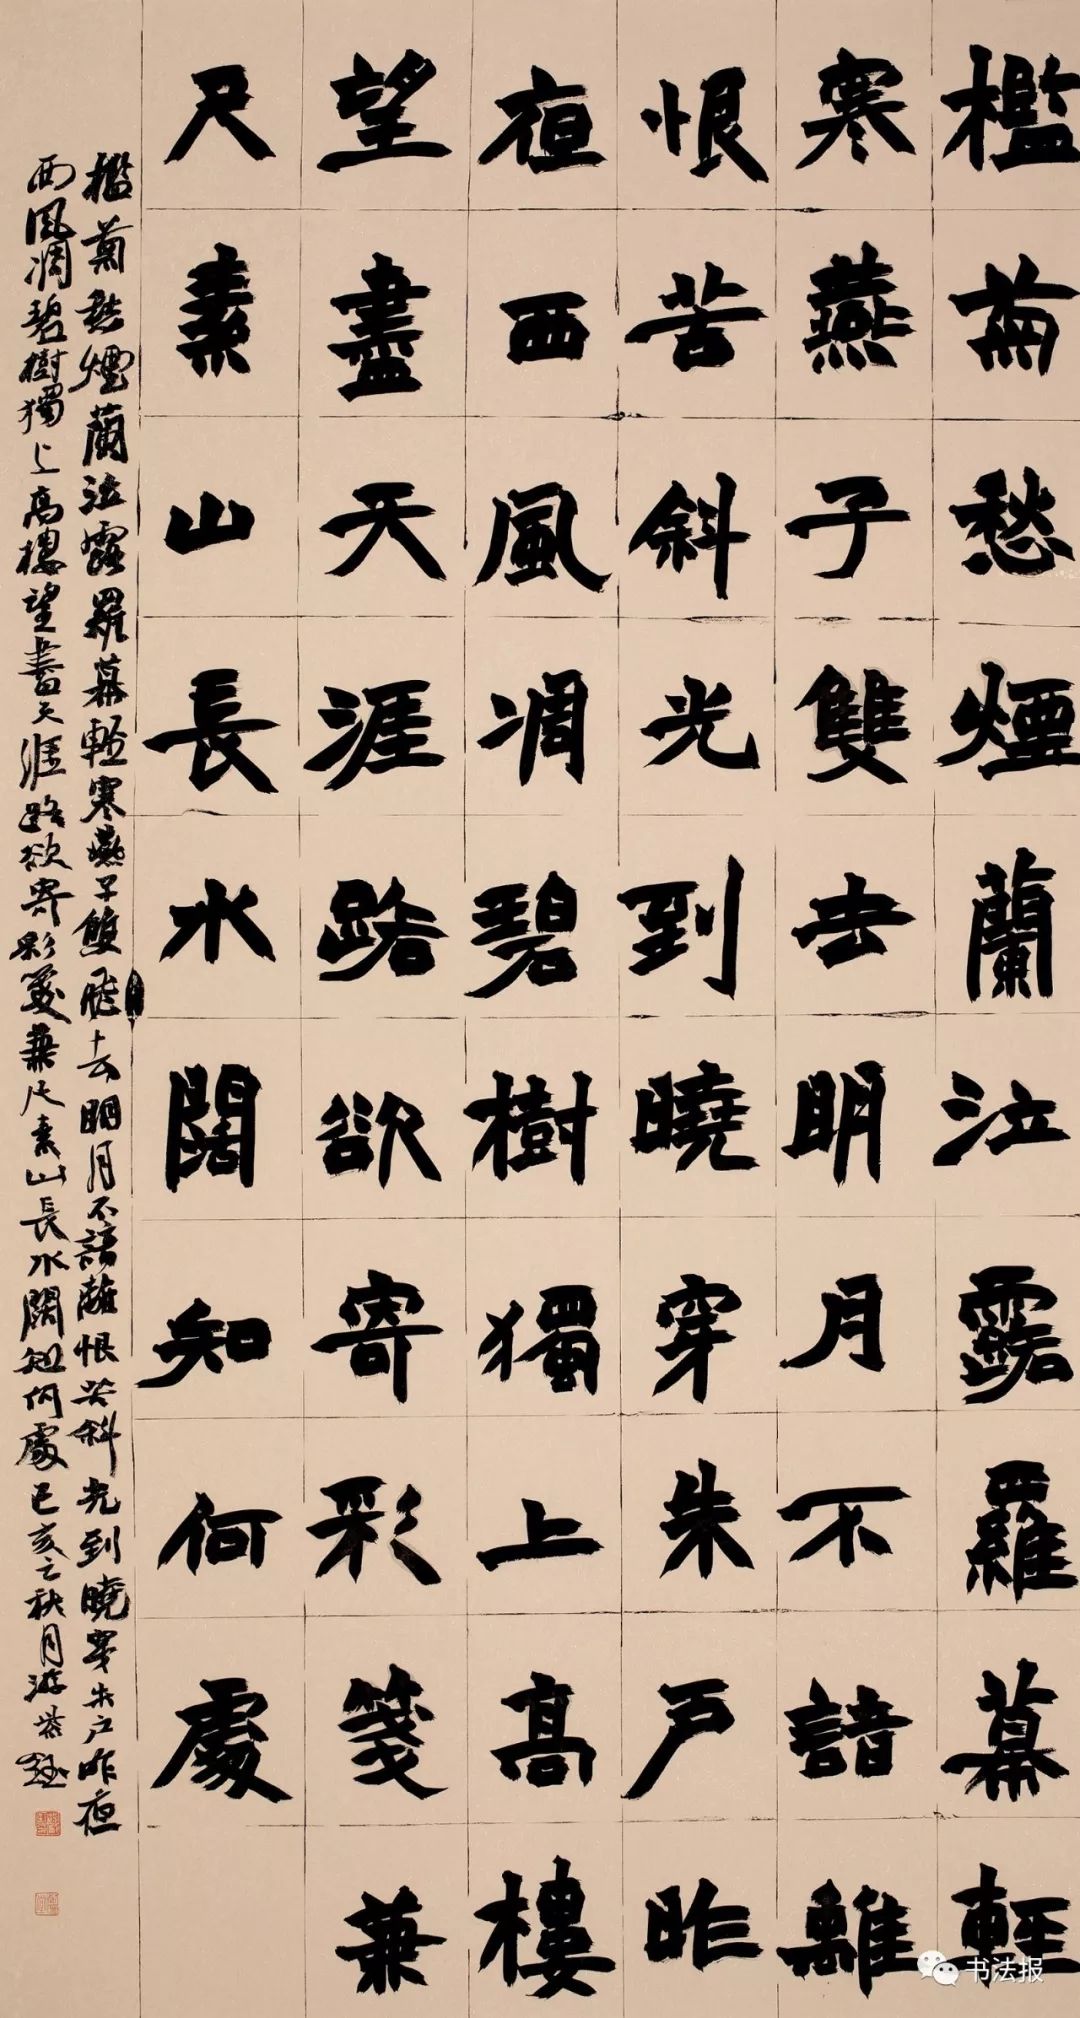 檻菊愁煙蘭泣露羅幕輕
寒燕子雙去明月不諳離
恨苦斜光到曉穿朱戶昨
夜西風凋碧樹獨上高樓
望盡天涯路欲寄彩箋兼
尺素山長水闊知何處
檻菊愁煙蘭泣露羅幕輕寒燕子雙飛去明月不諳離恨苦斜光到曉穿朱戶昨夜
西風凋碧樹獨上高樓望盡天涯路欲寄彩箋兼尺素山長水闊知何處己亥之秋月游
书法报